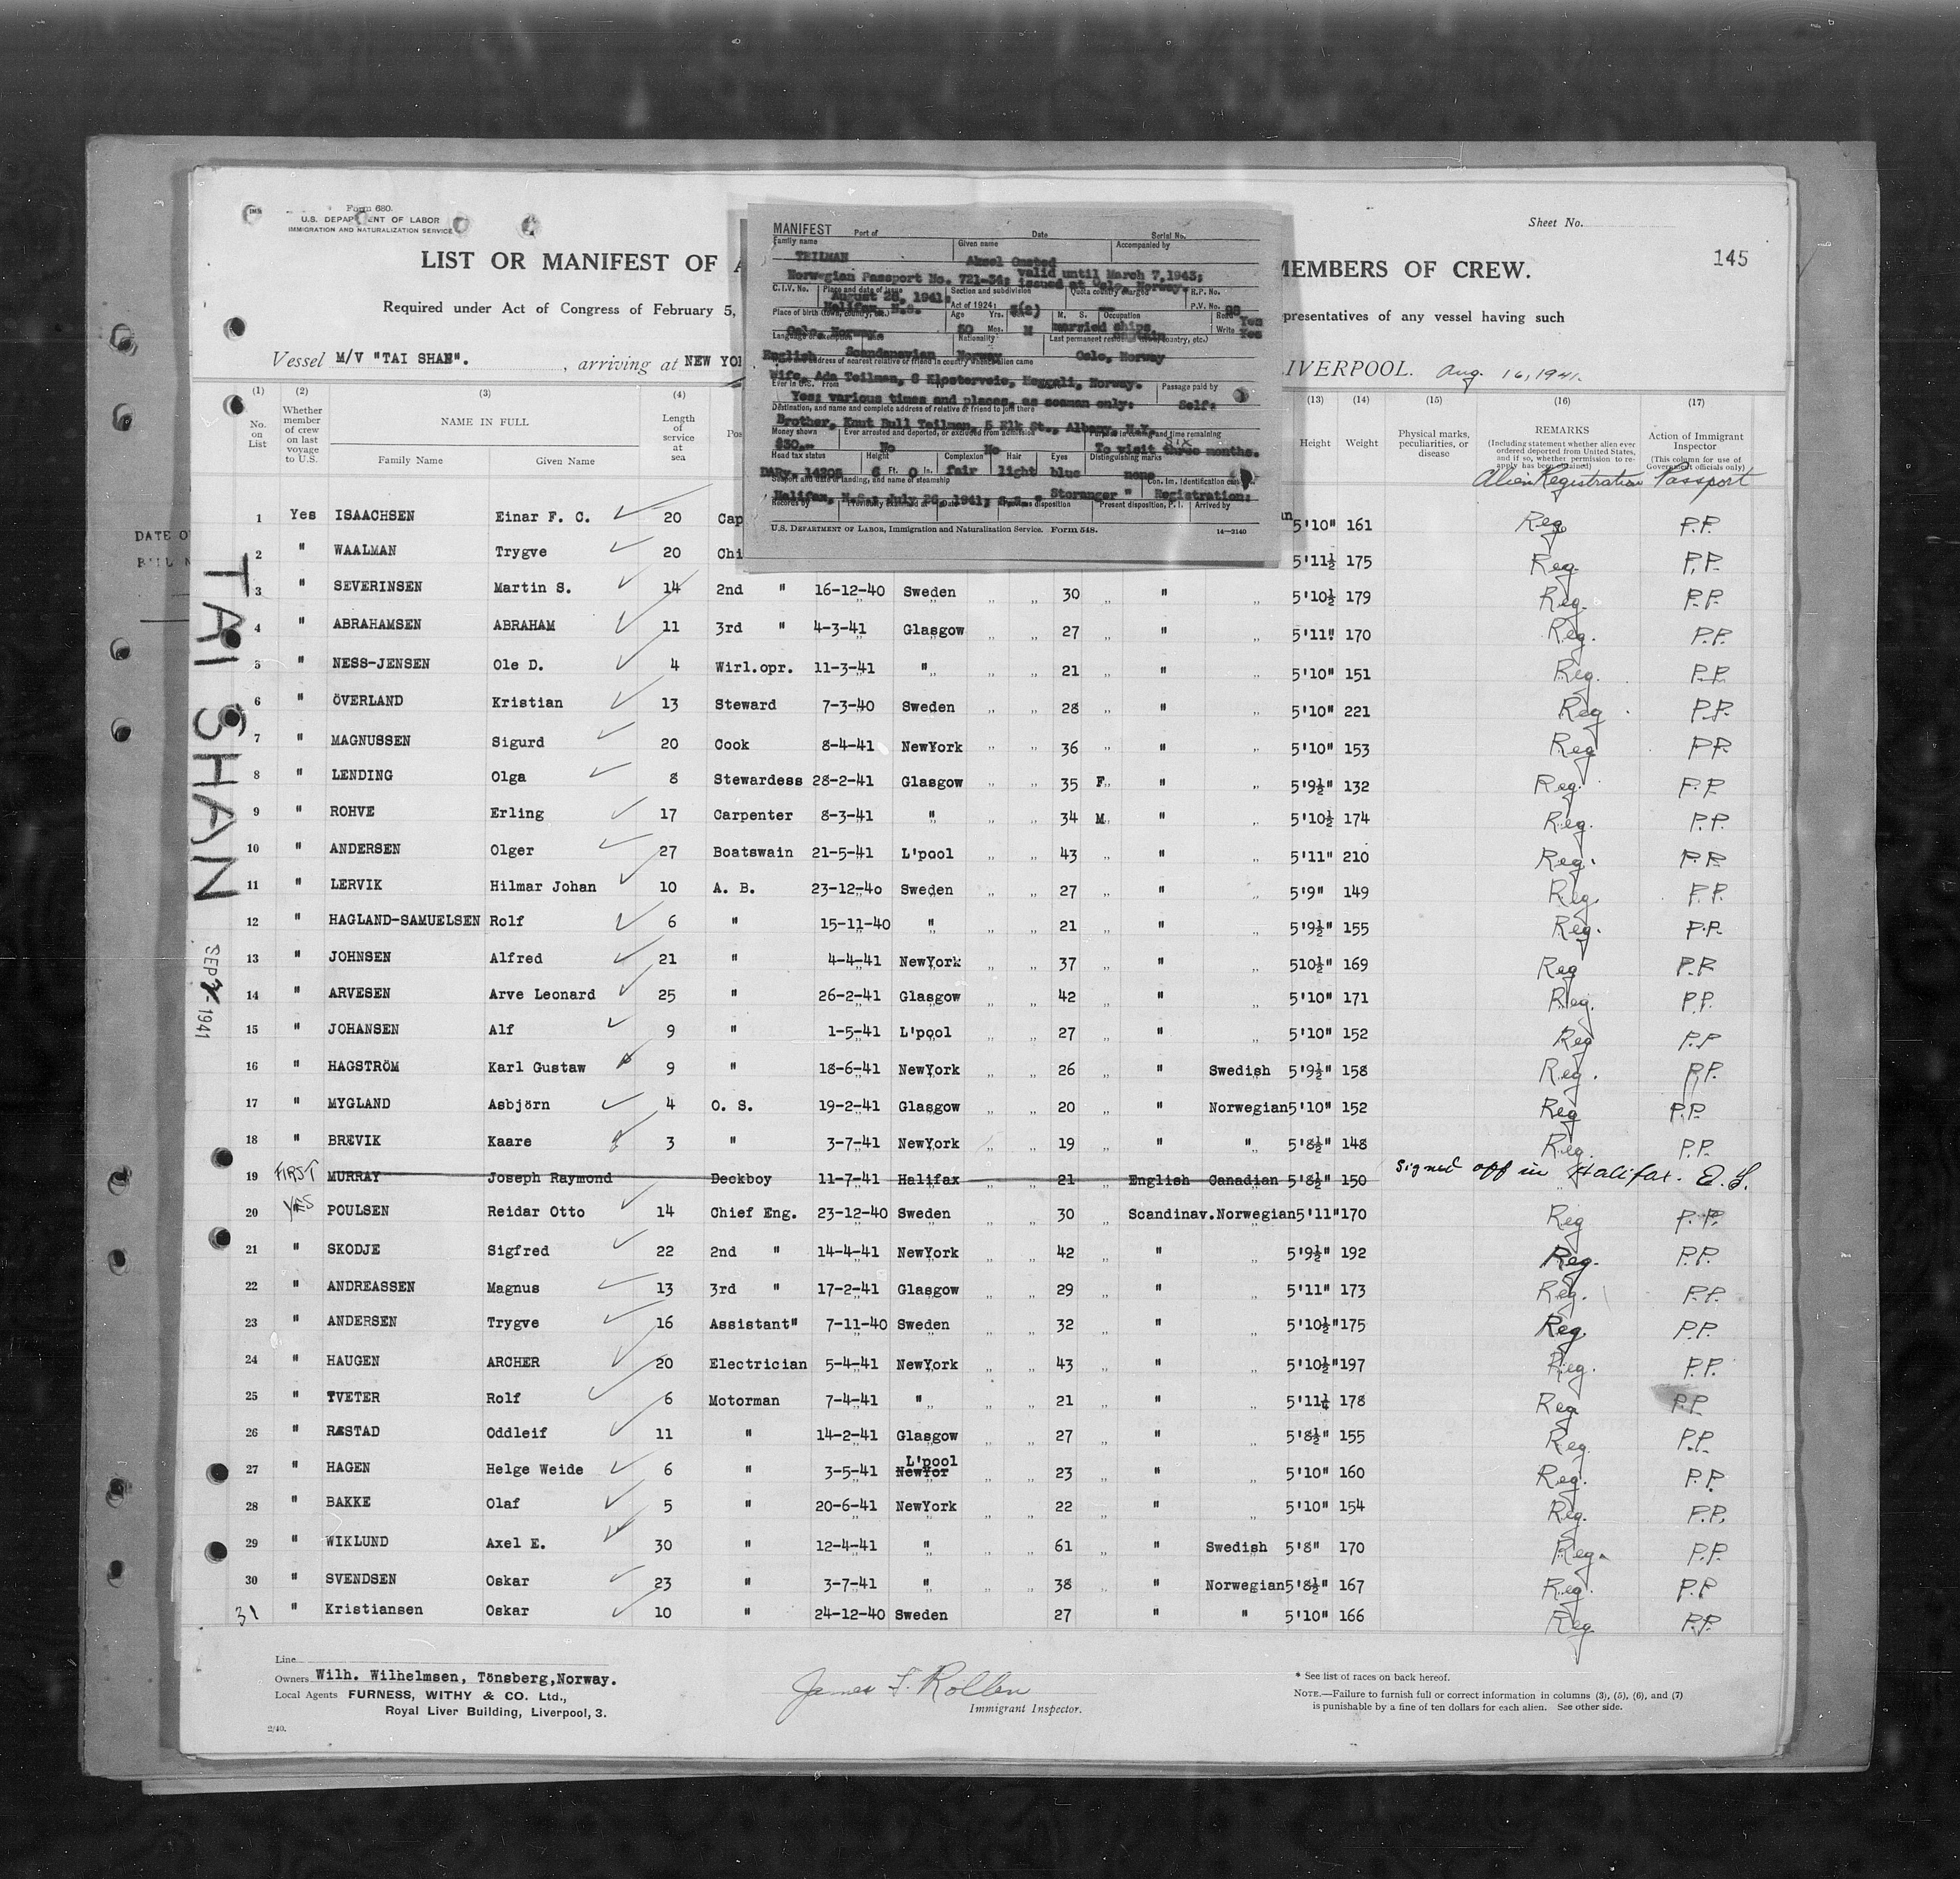 Form 680.
U.S. DEPARTMENT OF LABOR
IMMIGRATION AND NATURALIZATION SERVICE
Sheet No.
145
LIST OR MANIFEST OF A
MEMBERS OF CREW.
Required under Act of Congress of February 5,
presentatives of any vessel having such
Vessel M/V "TAI SHAN". , arriving at NEW YO
LIVERPOOL. Aug. 16, 1941.
MANIFEST Port of Date Serial No.
Family name Given name Accompanied by
TEILMAN Aksel Onsted
Norwegian Passport No. 721-34; valid until March 7, 1943;
issued at Oslo, Norway.
C.I.V. No. Place and date of issue Section and subdivision Quota country charged R.P. No.
August 28, 1941;
Halifax, N.S. Act of 1924; P.V. No.
Place of birth (town, country, etc.) Age Yrs. Mos. M. S. Occupation Read Yes
Oslo, Norway. 50 M married ships Write Yes
Nationality Last permanent residence (town, country, etc.)
English Scandanavian Norway Oslo, Norway
address of nearest relative or friend in country whence alien came
Wife, Ada Teilman, 8 Klosterveie, Heggeli, Norway.
Ever in U.S. From Passage paid by
Yes; various times and places, as seaman only: Self:
Destination, and name and complete address of relative or friend to join there
Brother, Knut Bull Teilman, 5 Elk St., Albany, N.Y.
Money shown Ever arrested and deported, or excluded from admission Purpose in coming and time remaining
$30.-- No No To visit three months. six
Head tax status Height Complexion Hair Eyes Distinguishing marks
6 Ft. 0 In. fair light blue none
Seaport and date of landing, and name of steamship Con. Im. Identification card
Halifax, N.S.; July 26, 1941; s.s. " Storanger " Registration:
Records by Previously examined at Date Previous disposition Present disposition, P.I. Arrived by
U.S. DEPARTMENT OF LABOR, Immigration and Naturalization Service. Form 548. 14—2140
(1) (2) (3) (4) (13) (14) (15) (16) (17)
No. on List
Whether member of crew on last voyage to U.S.
NAME IN FULL
Family Name Given Name
Length of service at sea
Pos
Height
Weight
Physical marks, peculiarities, or disease
REMARKS
(Including statement whether alien ever ordered deported from United States, and if so, whether permission to reapply has been obtained)
Action of Immigrant Inspector
(This column for use of Government officials only)
Alien Registration Passport
DATE O
TAI SHAN
SEP 1941
1 Yes ISAACHSEN Einar F. C. 20 Cap 5'10" 161 Reg P.P.
2 " WAALMAN Trygve 20 Chi 5'11½ 175 Reg. P.P.
3 " SEVERINSEN Martin S. 14 2nd " 16-12-40 Sweden " " 30 " " " 5'10½ 179 Reg. P.P.
4 " ABRAHAMSEN ABRAHAM 11 3rd " 4-3-41 Glasgow " " 27 " " " 5'11" 170 Reg. P.P.
5 " NESS-JENSEN Ole D. 4 Wirl.opr. 11-3-41 " " " 21 " " " 5'10" 151 Reg. P.P.
6 " ÖVERLAND Kristian 13 Steward 7-3-40 Sweden " " 28 " " " 5'10" 221 Reg. P.P.
7 " MAGNUSSEN Sigurd 20 Cook 8-4-41 NewYork " " 36 " " " 5'10" 153 Reg P.P.
8 " LENDING Olga 8 Stewardess 28-2-41 Glasgow " " 35 F " " 5'9½" 132 Reg. P.P.
9 " ROHVE Erling 17 Carpenter 8-3-41 " " " 34 M " " 5'10½ 174 Reg. P.P.
10 " ANDERSEN Olger 27 Boatswain 21-5-41 L'pool " " 43 " " " 5'11" 210 Reg. P.P.
11 " LERVIK Hilmar Johan 10 A. B. 23-12-40 Sweden " " 27 " " " 5'9" 149 Reg. P.P.
12 " HAGLAND-SAMUELSEN Rolf 6 " 15-11-40 " " " 21 " " " 5'9½" 155 Reg. P.P.
13 " JOHNSEN Alfred 21 " 4-4-41 NewYork " " 37 " " " 510½" 169 Reg P.P.
14 " ARVESEN Arve Leonard 25 " 26-2-41 Glasgow " " 42 " " " 5'10" 171 Reg. P.P.
15 " JOHANSEN Alf 9 " 1-5-41 L'pool " " 27 " " " 5'10" 152 Reg P.P.
16 " HAGSTRÖM Karl Gustaw 9 " 18-6-41 NewYork " " 26 " " Swedish 5'9½" 158 Reg. P.P.
17 " MYGLAND Asbjörn 4 O. S. 19-2-41 Glasgow " " 20 " " Norwegian 5'10" 152 Reg P.P.
18 " BREVIK Kaare 3 " 3-7-41 NewYork " " 19 " " " 5'8½" 148 Reg. P.P.
19 FIRST MURRAY Joseph Raymond Deckboy 11-7-41 Halifax " " 21 " English Canadian 5'8½" 150 Signed off in Halifax.
20 YES POULSEN Reidar Otto 14 Chief Eng. 23-12-40 Sweden " " 30 " Scandinav. Norwegian 5'11" 170 Reg P.P.
21 " SKODJE Sigfred 22 2nd " 14-4-41 NewYork " " 42 " " " 5'9½" 192 Reg. P.P.
22 " ANDREASSEN Magnus 13 3rd " 17-2-41 Glasgow " " 29 " " " 5'11" 173 Reg. P.P.
23 " ANDERSEN Trygve 16 Assistant" 7-11-40 Sweden " " 32 " " " 5'10½" 175 Reg. P.P.
24 " HAUGEN ARCHER 20 Electrician 5-4-41 NewYork " " 43 " " " 5'10½" 197 Reg. P.P.
25 " TVETER Rolf 6 Motorman 7-4-41 " " " 21 " " " 5'11¼ 178 Reg P.P.
26 " RÆSTAD Oddleif 11 " 14-2-41 Glasgow " " 27 " " " 5'8½" 155 Reg. P.P.
27 " HAGEN Helge Weide 6 " 3-5-41 L'pool NewYor " " 23 " " " 5'10" 160 Reg. P.P.
28 " BAKKE Olaf 5 " 20-6-41 NewYork " " 22 " " " 5'10" 154 Reg. P.P.
29 " WIKLUND Axel E. 30 " 12-4-41 " " " 61 " " Swedish 5'8" 170 Reg. P.P.
30 " SVENDSEN Oskar 23 " 3-7-41 " " " 38 " " Norwegian 5'8½" 167 Reg. P.P.
31 " Kristiansen Oskar 10 " 24-12-40 Sweden 27 " " 5'10" 166 Reg P.P.
Line
Owners Wilh. Wilhelmsen, Tönsberg, Norway.
Local Agents FURNESS, WITHY & CO. Ltd.,
Royal Liver Building, Liverpool, 3.
2/40.
James F. Rollen
Immigrant Inspector.
* See list of races on back hereof.
NOTE.—Failure to furnish full or correct information in columns (3), (5), (6), and (7)
is punishable by a fine of ten dollars for each alien. See other side.